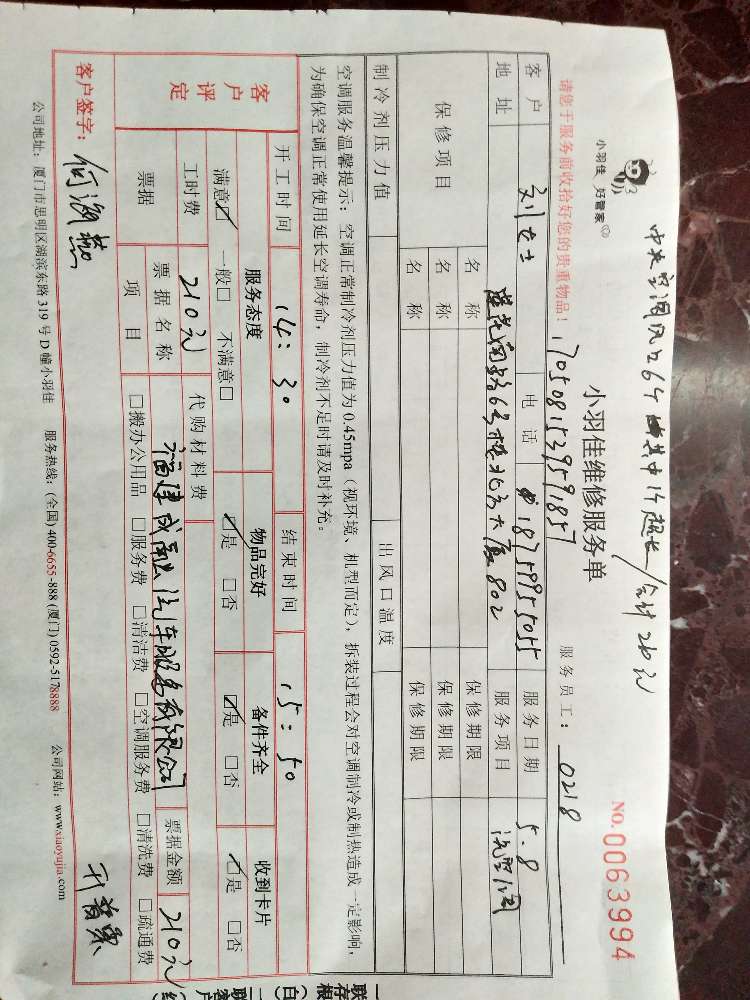 中央空调风口6个其中1个超长/合计210元
小羽佳 好管家
小羽佳维修服务单
NO.0063994
请您于服务前收拾好您的贵重物品!
1705081539591857
服务员工: 0218
客户 刘女士 电话 18759955055 服务日期 5.8
地址 莲花南路6号楼北方大厦802 服务项目 洗空调
保修项目 名称 保修期限
名称 保修期限
名称 保修期限
制冷剂压力值 出风口温度
空调服务温馨提示: 空调正常制冷剂压力值为0.45mpa (视环境、机型而定), 拆装过程会对空调制冷或制热造成一定影响,
为确保空调正常使用延长空调寿命, 制冷剂不足时请及时补充。
客户评定
开工时间 14:30 结束时间 15:50
服务态度 物品完好 备件齐全 收到卡片
满意☑ 一般□ 不满意□ ☑是 □否 ☑是 □否 ☑是 □否
工时费 210元 代购材料费
票据 票据名称 福建成功汽车服务有限公司 票据金额 210元
项目 □搬办公用品 □服务费 □清洁费 □空调服务费 □清洗费 □疏通费
客户签字:
公司地址: 厦门市思明区湖滨东路319号D幢小羽佳 服务热线: (全国) 400-6655-888 (厦门) 0592-5178888 公司网站: www.xiaoyujia.com